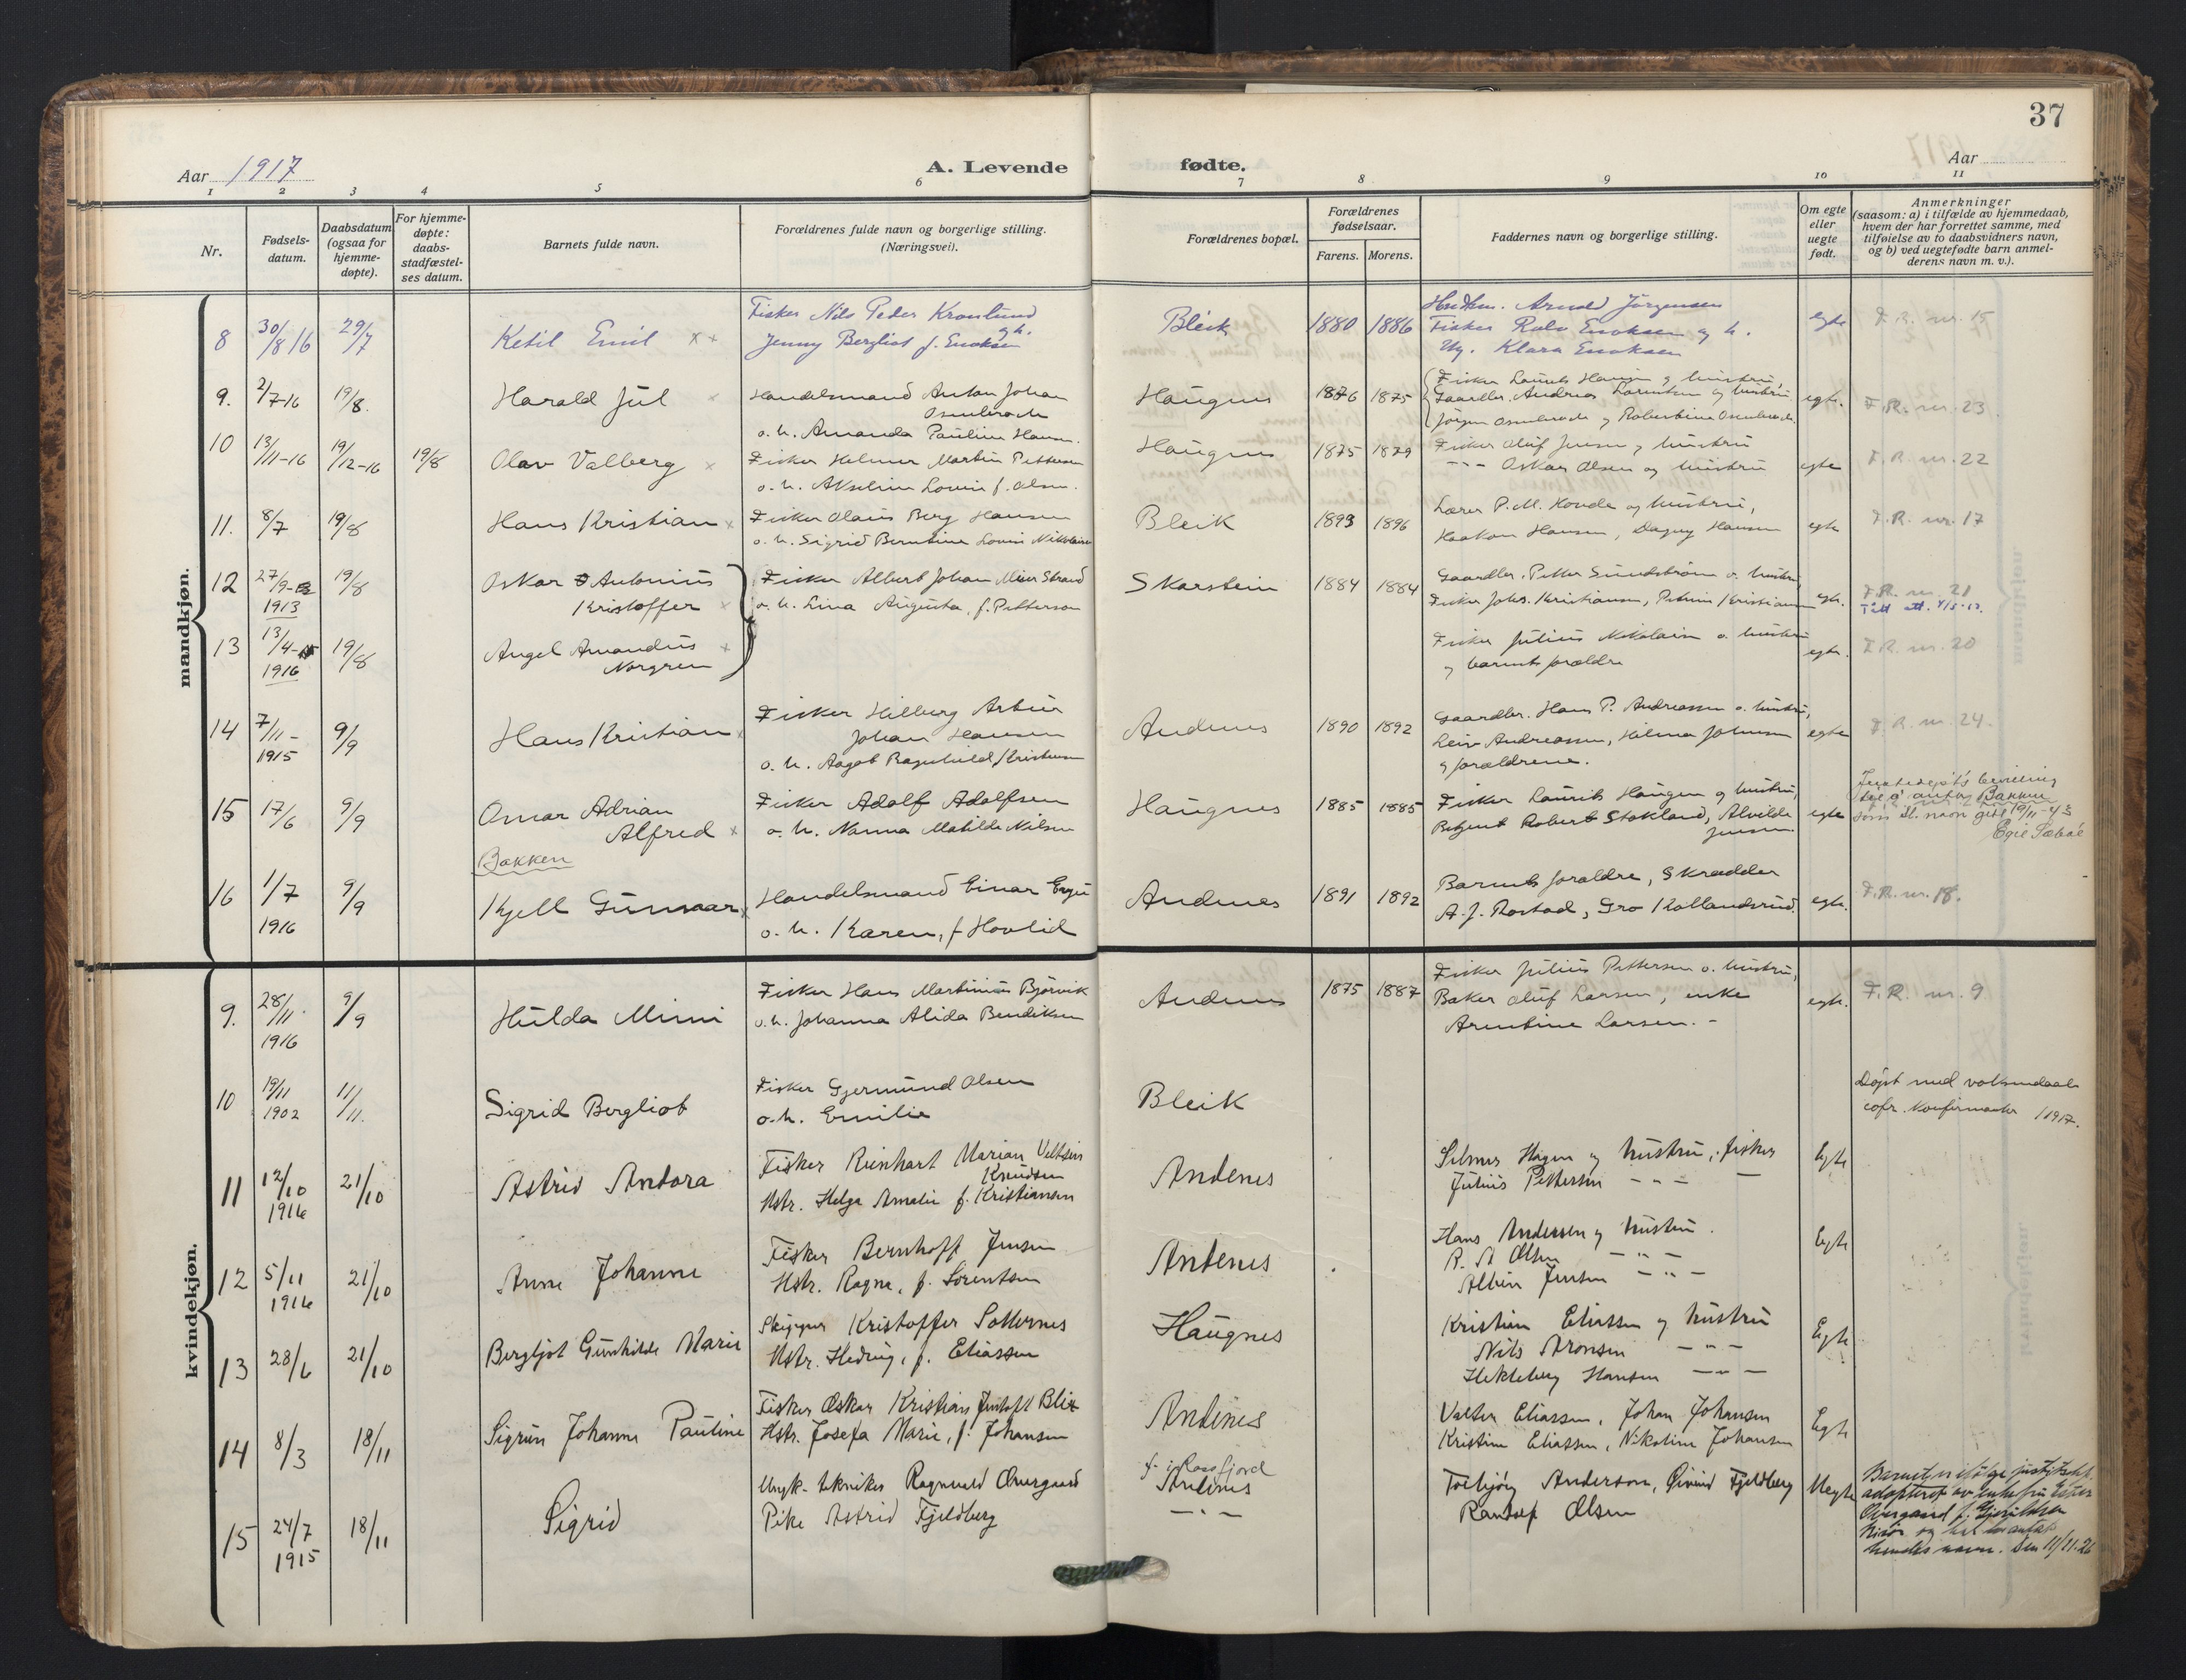 37
Aar 1917
A. Levende
fødte.
Aar
1 2 3 4 5 6 7 8 9 10 11
Nr.
Fødsels-
datum.
Daabsdatum
(ogsaa for
hjemme-
døpte).
For hjemme-
døpte:
daabs-
stadfæstel-
ses datum.
Barnets fulde navn.
Forældrenes fulde navn og borgerlige stilling.
(Næringsvei).
Forældrenes bopæl.
Forældrenes
fødselsaar.
Farens. Morens.
Faddernes navn og borgerlige stilling.
Om egte
eller
uegte
født.
Anmerkninger
(saasom: a) i tilfælde av hjemmedaab,
hvem der har forrettet samme, med
tilføielse av to daabsvidners navn,
og b) ved uegtefødte barn anmel-
derens navn m. v.).
mandkjøn.
8 30/8 16 29/7 Ketil Emil
Fisker Nils Peder Kronlund
g h.
Jenny Bergliot f. Enoksen
Bleik 1880 1886
Arnold Jørgensen
Fisker Rolv Enoksen og h.
Ug. Klara Enoksen
egte F.R. nr. 15
9. 2/7-16 19/8. Harald Jul
Handelsmand Anton Johan
o. h. Amanda Pauline Hansen.
Haugnes 1876 1875
Fisker Laurits Haugen og hustru,
Gaardbr. Andreas Lorentsen og hustru
egte. F.R. nr. 23
10 13/11-16 19/12-16 19/8 Olav Valberg
Fisker Helmer Martin Pettersen
o. h. Akseline Lovise f. Olsen.
Haugnes 1875 1879
Fisker Oluf Jensen og hustru
--- Oskar Olsen og hustru
egte F.R. nr. 22
11. 8/7 19/8 Hans Kristian
Fisker Olaus Berg Hansen
o. h. Sigrid Berntine Lovise Nikolaisen
Bleik 1893 1896
Lærer P. M. Hovde og hustru,
Haakon Hansen, Dagny Hansen
egte F.R. nr. 17
12 27/9 1913 19/8 Oskar Antonius
Kristoffer
Fisker Albert Johan Meier Strand
o. h. Lina Augusta, f. Petterson
Skarstein 1884 1884
Gaardbr. Petter Sundstrøm o. hustru,
Fisker Johs. Kristiansen, Petrine Kristiansen
egte. F.R. nr. 21
13 13/4 1916 19/8 Angel Amandus
Norgren
Fisker Julius Nikolaisen o. hustru
og barnets forældre
egte. F.R. nr. 20
14 7/11-1915 9/9 Hans Kristian
Fisker Hilberg Artur
Johan Hansen
o. h. Aagot Ragnhild Kristensen
Andenes 1890 1892
Gaardbr. Hans P. Andreassen o. hustru,
Leiv Andreassen, Hilma Johansen
og forældrene.
egte F.R. nr. 24.
15 17/6 9/9 Omar Adrian
Alfred
Bakken
Fisker Adolf Adolfsen
o. h. Nanna Matilde Nilsen
Haugnes 1885 1885
Fisker Laurits Haugen og hustru,
Betjent Robert Stokland, Alvilde
Jensen
egte
bevilling
til å anta Bakken
som sl. navn gitt 19/11-43
16 1/7 1916 9/9 Kjell Gunnar
Handelsmand Einar
o. h. Karen, f Hovlid
Andenes 1891 1892
Barnets forældre, Skrædder
A. J. Rostad, Gro Kollandsrud.
egte. F.R. nr. 18.
kvindekjøn.
9. 28/11. 1916 9/9 Hulda Mimi
Fisker Hans Martinius Bjørvik
o. h. Johanna Alida Bendiksen
Andenes 1875 1887
Fisker Julius Pettersen o. hustru,
Baker Oluf Larsen, enke
Arntine Larsen. -
egte. F.R. nr. 9
10 19/11 1902 11/11. Sigrid Bergliot
Fisker Gjermund Olsen
o. h. Emilie
Bleik
Døpt med voksendaab
cfr. Konfirmerte 1917.
11 12/10 1916 21/10 Astrid Andora
Fisker Reinhart Marian
Knudsen
Hstr. Helga Amalie f. Kristiansen
Andenes
Selmer Hagen og hustru, fisker
Julius Pettersen - " -
Egte
12 5/11 1916 21/10 Anne Johanne
Fisker Bernhoff Jensen
Hstr. Ragna, f. Lorentsen
Andenes
Hans Andersen og hustru.
R. A Olsen - " -
Albin Jensen - " -
Egte
13 28/6 21/10 Bergljot Gunhilde Marie
Skipper Kristoffer Sotternes
Hstr. Hedvig, f. Eliassen
Haugnes
Kristian Eliassen og hustru
Nils Aronsen - " -
Hekleberg Hansen - " -
Egte
14 8/3 18/11 Sigrun Johanne Pauline
Fisker Oskar Kristian Jentoft Blix
Hstr. Josefa Marie, f. Johansen
Andenes
Valter Eliassen, Johan Johansen
Kristine Eliassen, Nikoline Johansen
Egte
15 24/7 1915 18/11 Sigrid
Ungk. tekniker Ragnvald Overgaard
Pike Astrid Fjeldberg
f. i Rossfjord
Andenes
- " -
Torbjørg Anderson, Øivind Fjeldberg
Randolf Olsen
Uegte
Barnet er ifølge
adopteret av enkefru Ester
Overgaard f.
hendes navn. Den 11/11-26